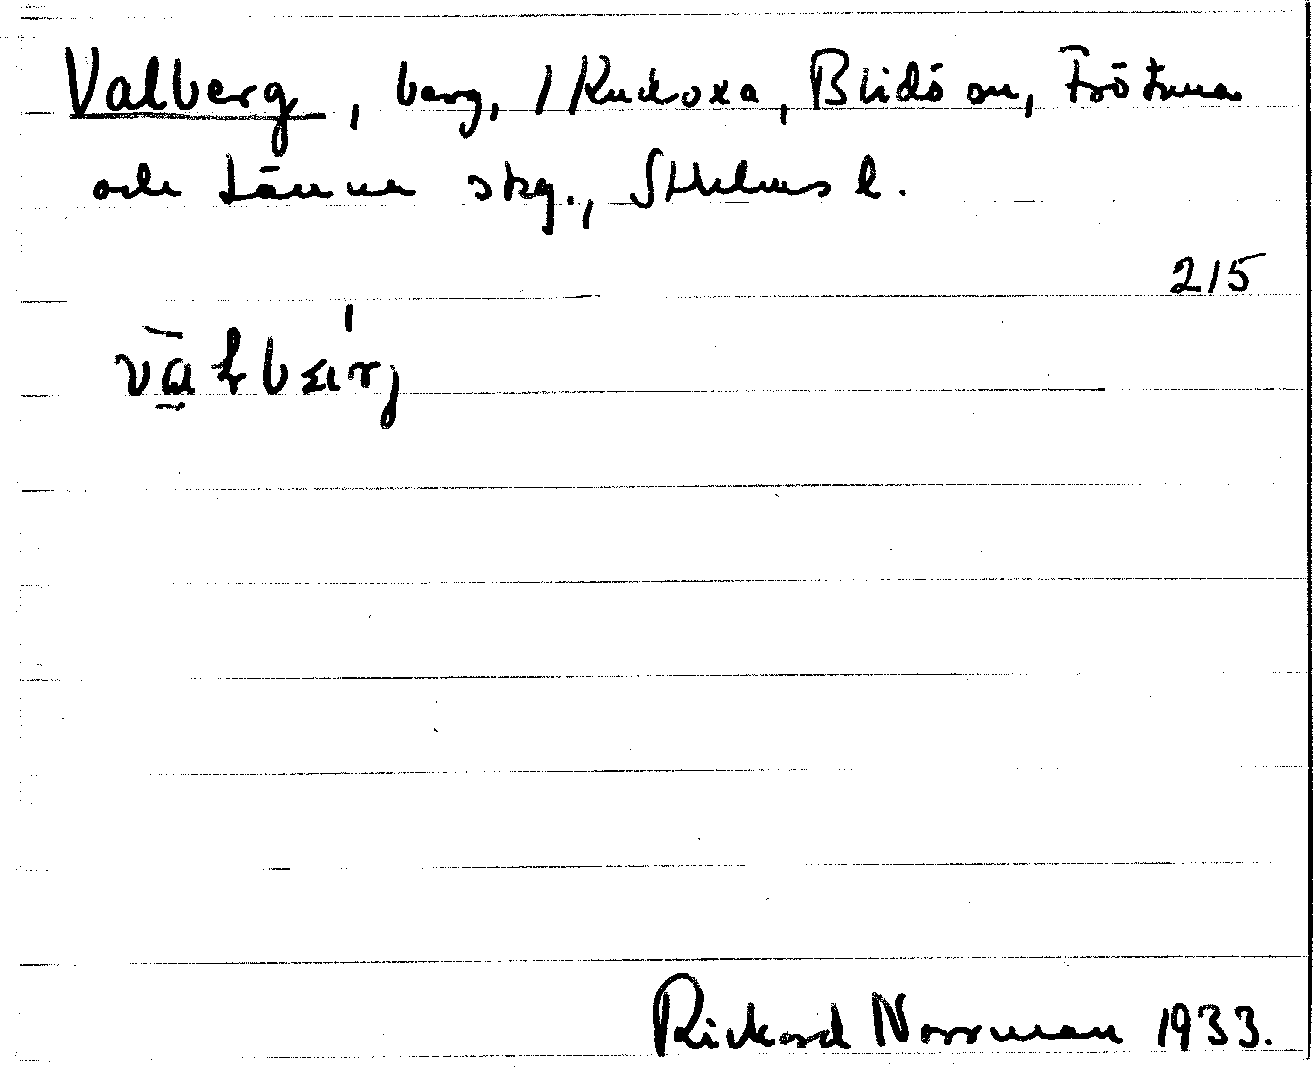 Valberg, berg, / Rudoxa, Blidö sn, Frötuna
och Länna skg., Sthlms l.
215
Rickard Norrman 1933.